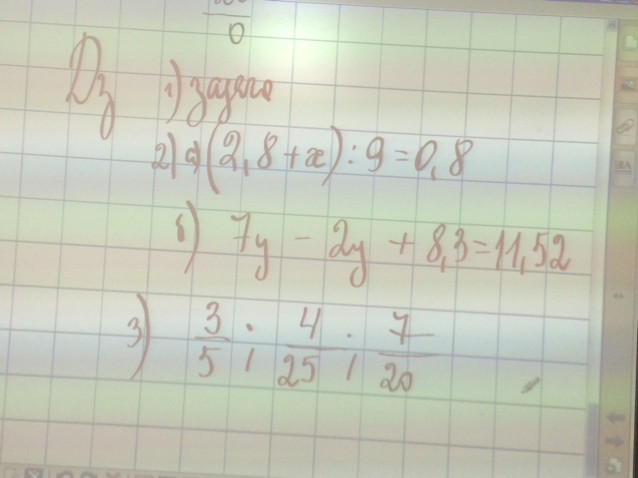 0
Дз 1) задача
2) а) (2,8 + x) : 9 = 0,8
б) 7y - 2y + 8,3 = 11,52
3) 3/5 ; 4/25 ; 7/20